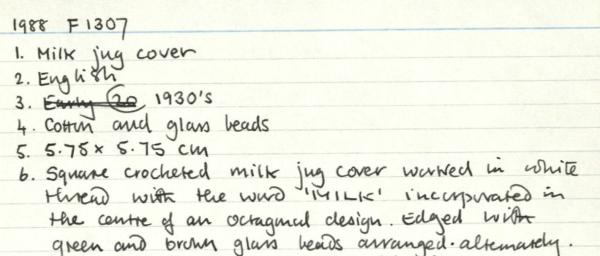 1988 F1307
1. Milk jug cover
2. English
3. Early 20 1930's
4. Cotton and glass beads
5. 5.75 x 5.75 cm
6. Square crocheted milk jug cover worked in white
thread with the word 'MILK' incorporated in
the centre of an octagonal design. Edged with
green and brown glass beads arranged alternately.